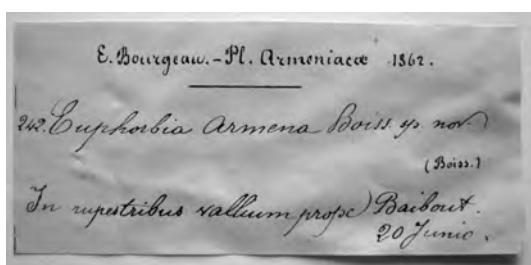 E. Bourgeau. - Pl. Armeniacæ 1862.
242. Euphorbia Armena Boiss. sp. nov.
(Boiss.)
In rupestribus vallium prope Baibout.
20 Junio.